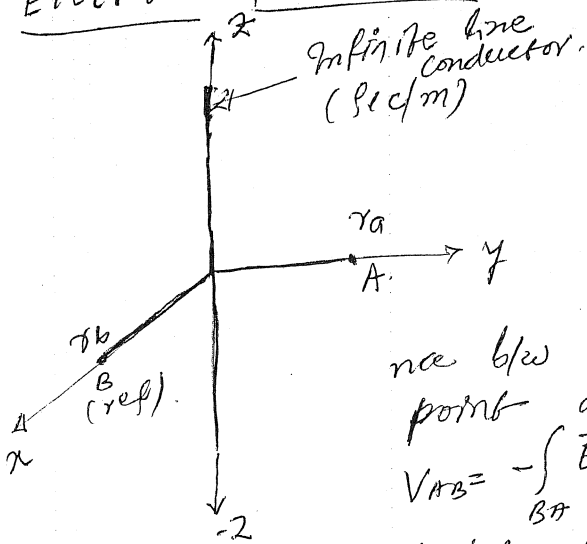 z
Infinite line
conductor.
(ρl c/m)
ra
y
A.
rb
B
(ref).
x
nce b/w
point
VAB = -∫
BA
-z